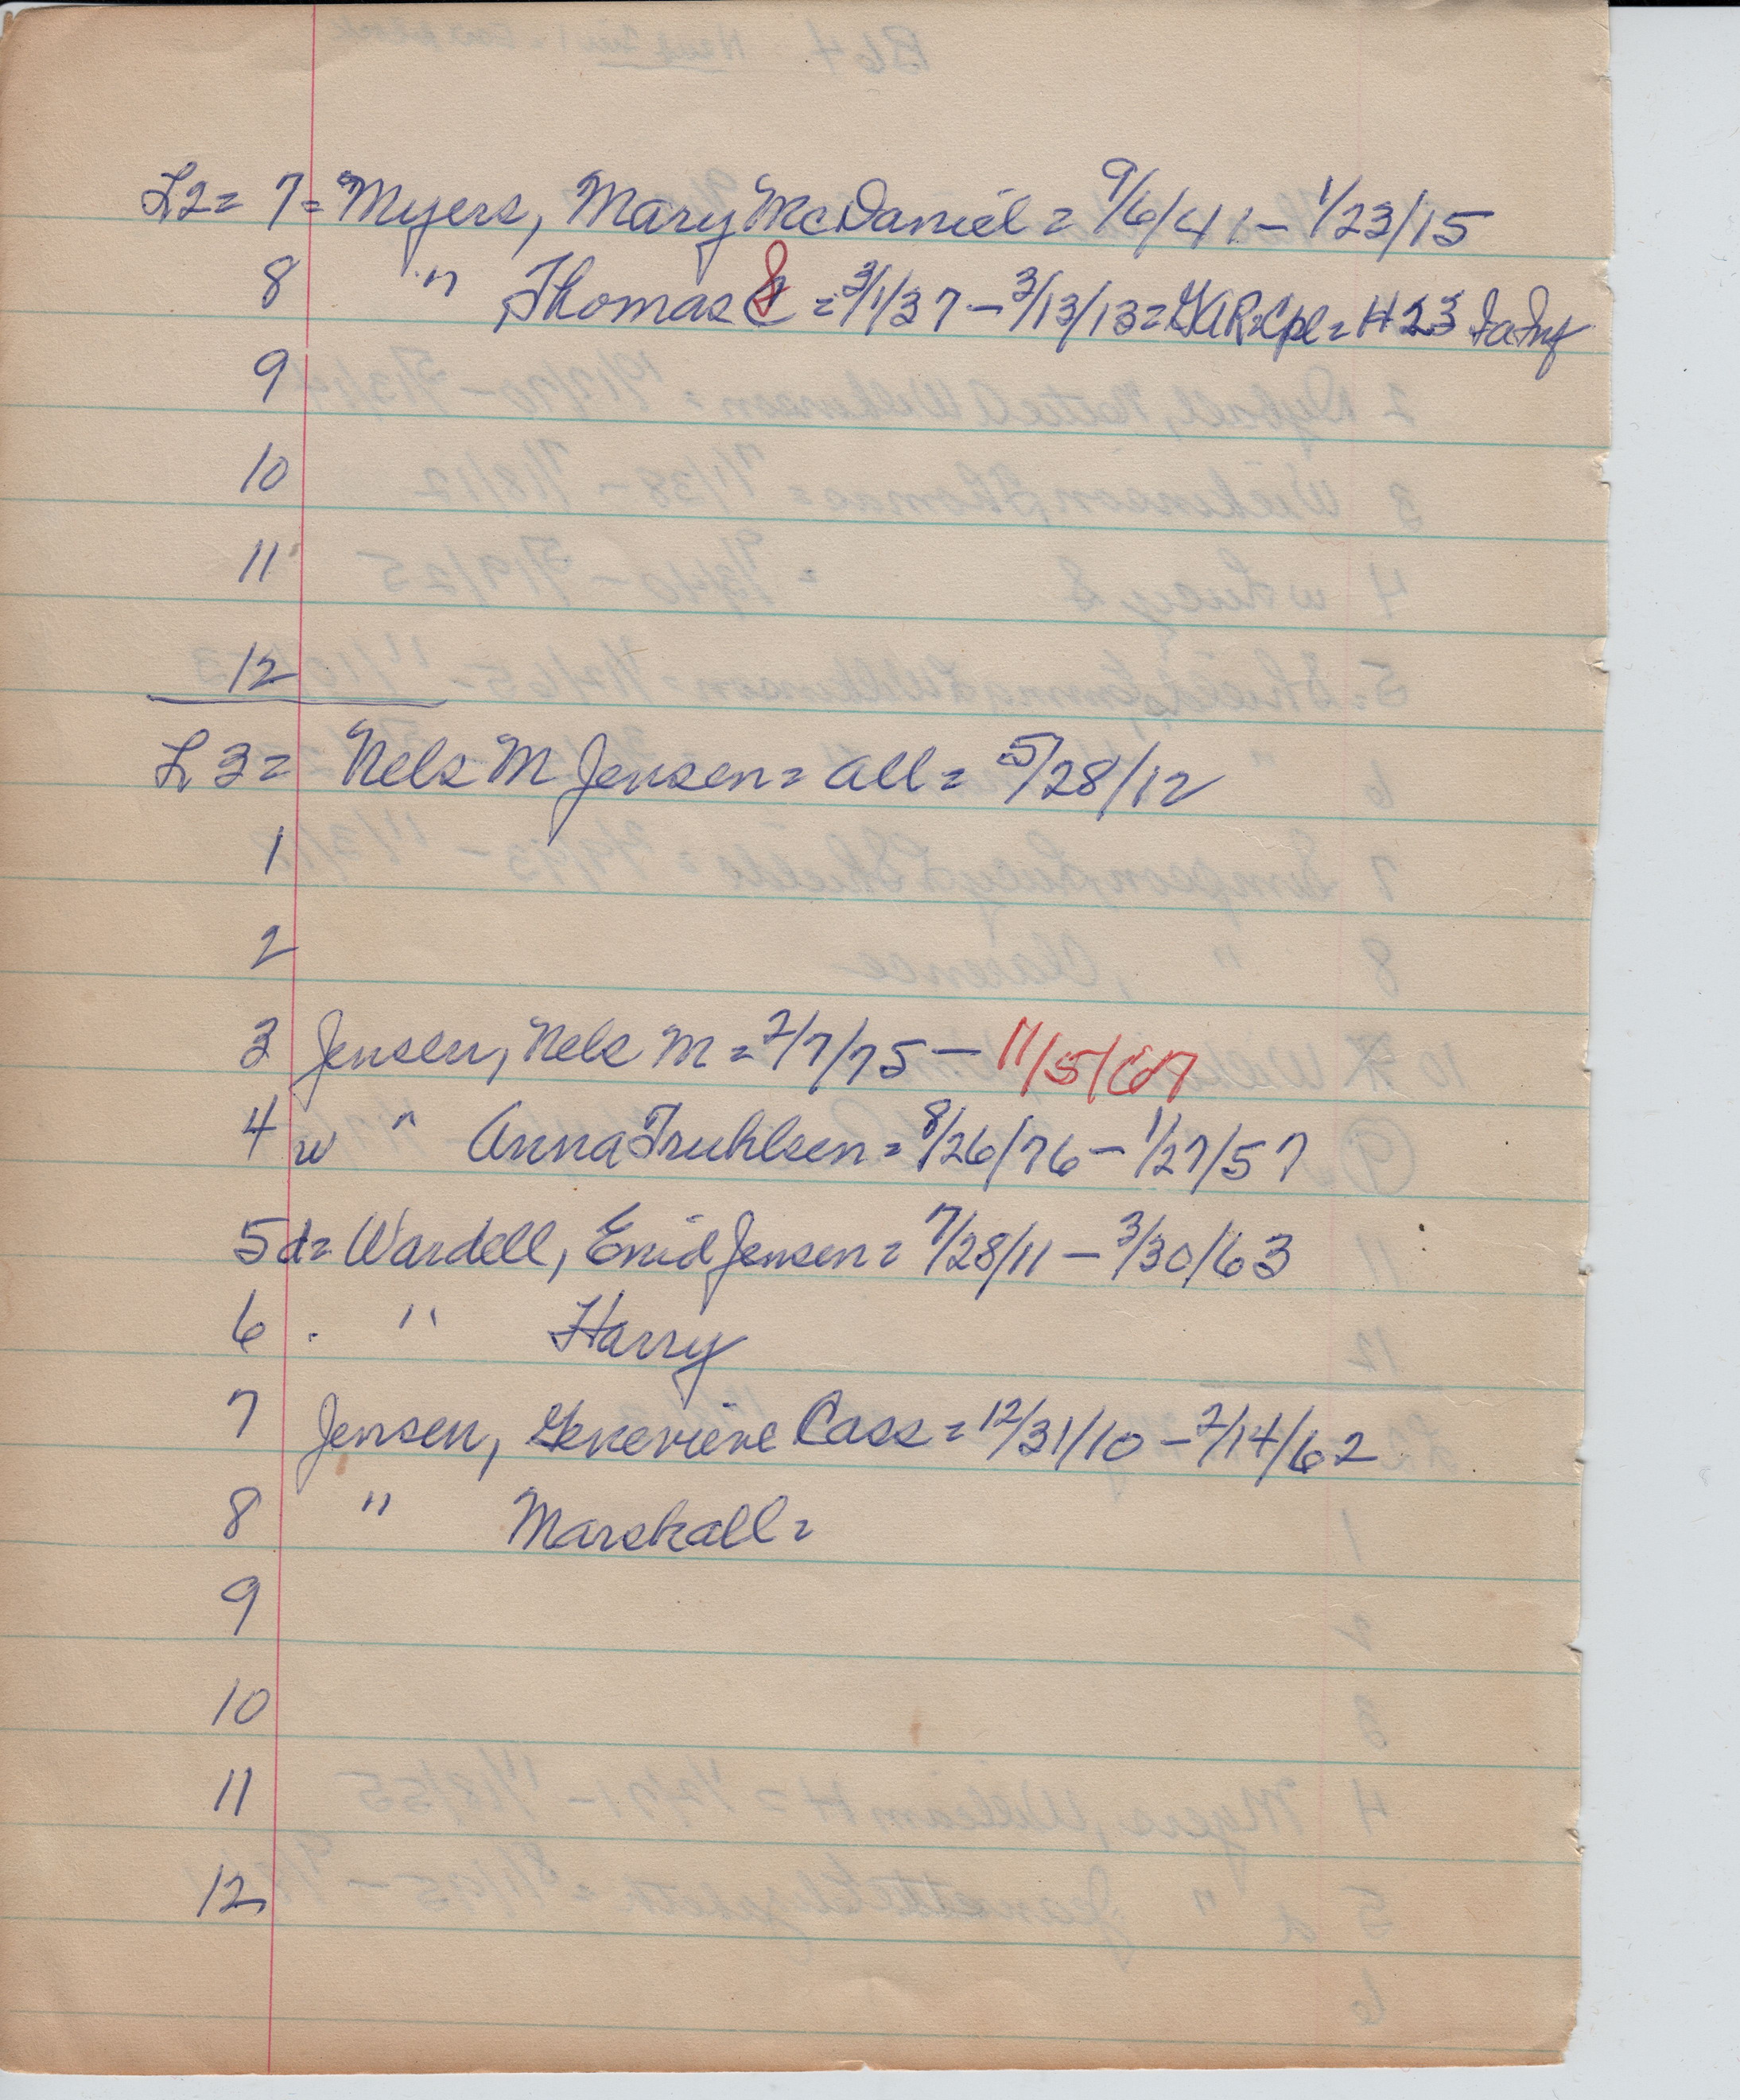 L2= 7= Myers, Mary McDaniel = 9/6/41 – 1/23/15
8 " Thomas = 3/1/37 – 3/13/13 = GAR = Cpl = H 23 Ia Inf
9
10
11
12
L 3= Nels M Jensen = all = 5/28/12
1
2
3 Jensen, Nels M = 2/7/75 – 11/5/67
4 w " Anna Truhlsen = 8/26/76 – 1/27/57
5 d= Wardell, Enid Jensen = 7/28/11 – 3/30/63
6 . " Harry
7 Jensen, Genevieve Cass = 12/31/10 – 2/14/62
8 " Marshall =
9
10
11
12